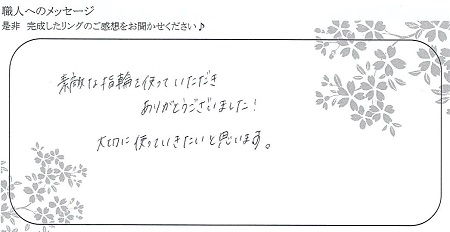 職人へのメッセージ
是非 完成したリングのご感想をお聞かせください♪
素敵な指輪を使っていただき
ありがとうございました!
大切に使っていきたいと思います。